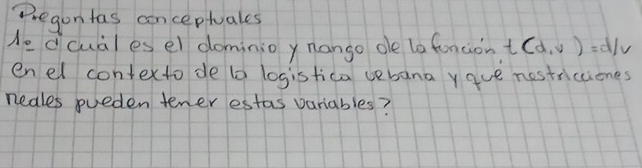 Preguntas conceptuales
1= d cuál es el dominio y rango de la función t(d,v)=d/v
en el contexto de la logistica urbana y qué restricciones
reales pueden tener estas variables?